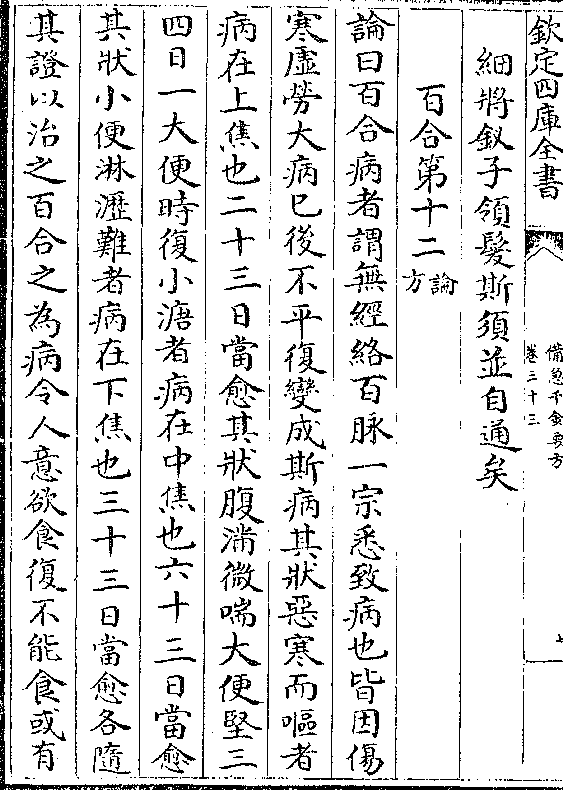 欽定四庫全書
備急千金要方
卷三十三
細將釵子領髮斯須並自通矣
百合第十二 論 方
論曰百合病者謂無經絡百脉一宗悉致病也皆因傷
寒虛勞大病已後不平復變成斯病其狀惡寒而嘔者
病在上焦也二十三日當愈其狀腹滿微喘大便堅三
四日一大便時復小溏者病在中焦也六十三日當愈
其狀小便淋瀝難者病在下焦也三十三日當愈各隨
其證以治之百合之為病令人意欲食復不能食或有